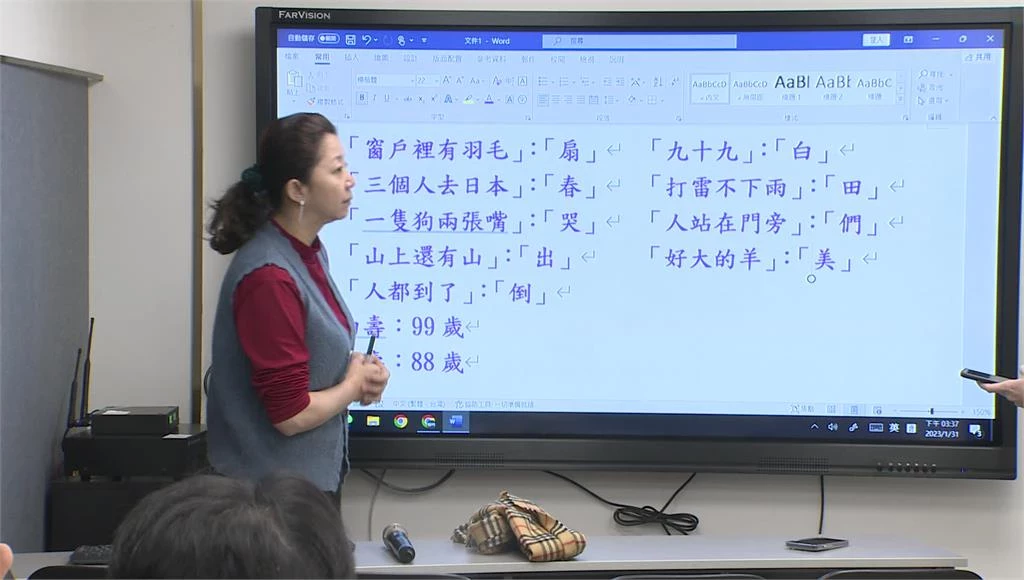 FARVISION
自動儲存
文件1 - Word
搜尋
登入
檔案 常用 插入 繪圖 設計 版面配置 參考資料 郵件 校閱 檢視 說明
共用
貼上
複製格式
22
AaBbCcD AaBbCcD AaBl AaBl AaBbC
內文 無間距 標題 1 標題 2 標題
字型 段落 樣式 編輯
「窗戶裡有羽毛」：「扇」
「三個人去日本」：「春」
「一隻狗兩張嘴」：「哭」
「山上還有山」：「出」
「人都到了」：「倒」
壽：99 歲
：88 歲
「九十九」：「白」
「打雷不下雨」：「田」
「人站在門旁」：「們」
「好大的羊」：「美」
中文 (繁體，台灣)
150%
英
下午 03:37
2023/1/31